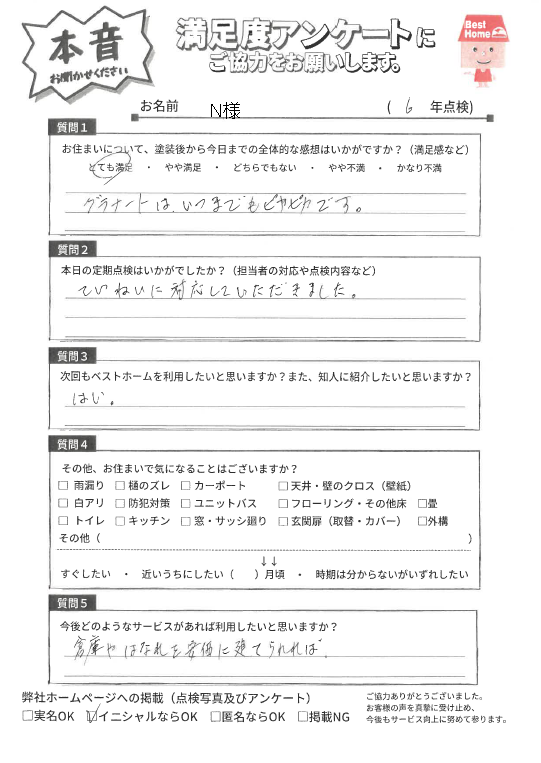 本音
お聞かせください
満足度アンケートに
ご協力をお願いします。
Best
Home
お名前 N様 ( 6 年点検)
質問1
お住まいについて、塗装後から今日までの全体的な感想はいかがですか？（満足感など）
とても満足 ・ やや満足 ・ どちらでもない ・ やや不満 ・ かなり不満
グラナートは、いつまでもピカピカです。
質問2
本日の定期点検はいかがでしたか？（担当者の対応や点検内容など）
ていねいに対応していただきました。
質問3
次回もベストホームを利用したいと思いますか？また、知人に紹介したいと思いますか？
はい。
質問4
その他、お住まいで気になることはございますか？
□ 雨漏り □ 樋のズレ □ カーポート □ 天井・壁のクロス（壁紙）
□ 白アリ □ 防犯対策 □ ユニットバス □ フローリング・その他床 □畳
□ トイレ □ キッチン □ 窓・サッシ廻り □ 玄関扉（取替・カバー） □外構
その他（ ）
↓↓
すぐしたい ・ 近いうちにしたい（ ）月頃 ・ 時期は分からないがいずれしたい
質問5
今後どのようなサービスがあれば利用したいと思いますか？
倉庫やはなれを安価に建てられれば。
弊社ホームページへの掲載（点検写真及びアンケート）
□実名OK ☑イニシャルならOK □匿名ならOK □掲載NG
ご協力ありがとうございました。
お客様の声を真摯に受け止め、
今後もサービス向上に努めて参ります。